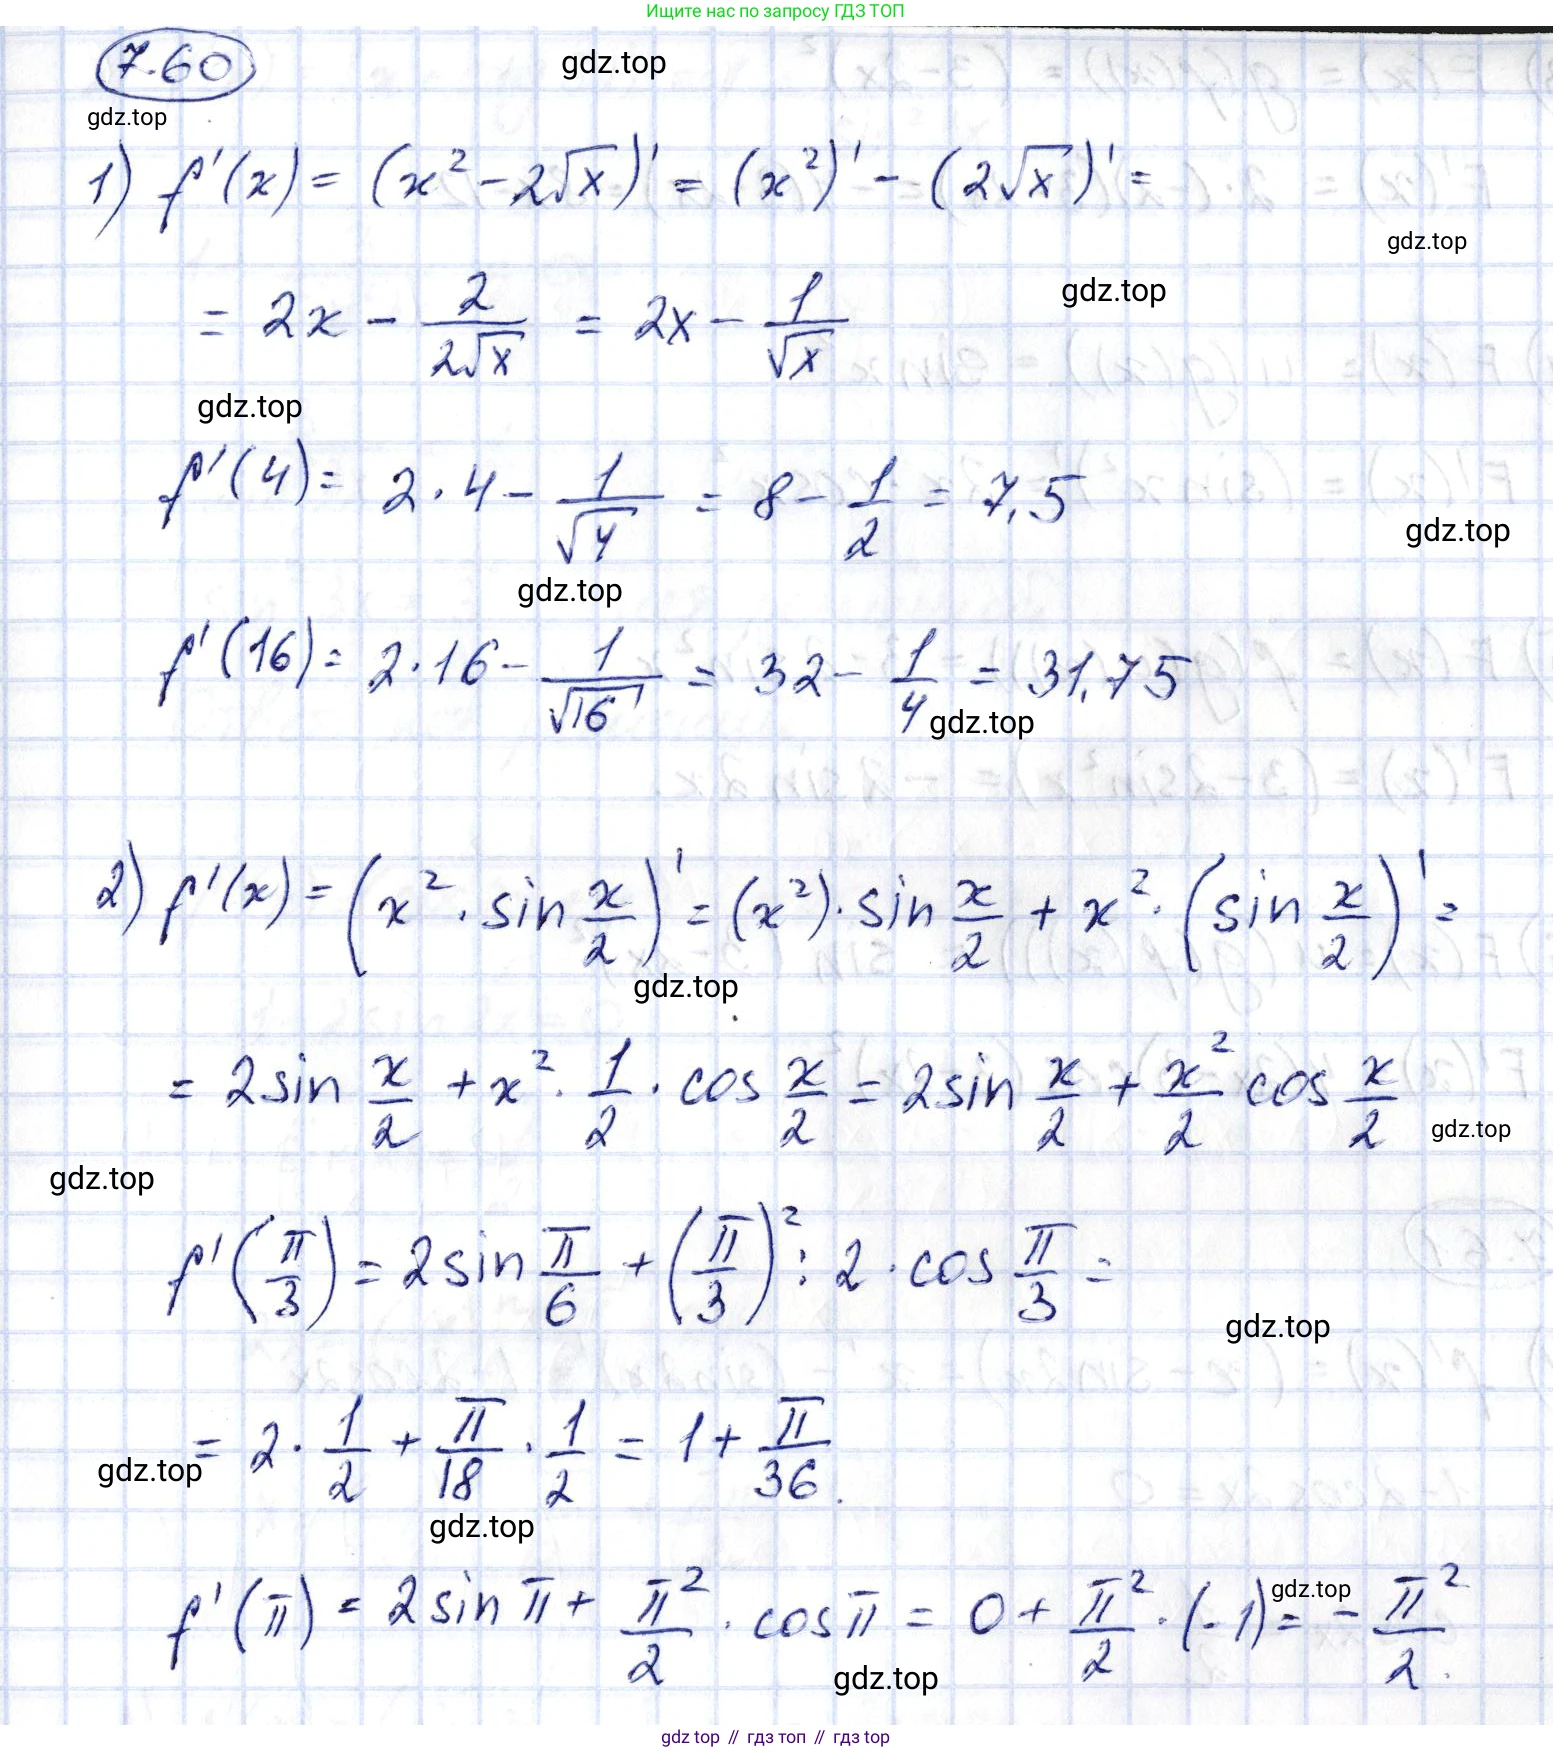 Ищите нас по запросу ГДЗ ТОП
7.60
gdz.top
gdz.top
1) f'(x) = (x² - 2√x)' = (x²)' - (2√x)' =
gdz.top
= 2x - 2/(2√x) = 2x - 1/√x
gdz.top
gdz.top
f'(4) = 2·4 - 1/√4 = 8 - 1/2 = 7,5
gdz.top
gdz.top
f'(16) = 2·16 - 1/√16 = 32 - 1/4 = 31,75
gdz.top
2) f'(x) = (x² · sin x/2)' = (x²)· sin x/2 + x² · (sin x/2)' =
gdz.top
= 2sin x/2 + x² · 1/2 · cos x/2 = 2sin x/2 + x²/2 cos x/2
gdz.top
gdz.top
f'(π/3) = 2sin π/6 + (π/3)² : 2 · cos π/3 =
gdz.top
= 2 · 1/2 + π/18 · 1/2 = 1 + π/36.
gdz.top
gdz.top
f'(π) = 2sin π + π²/2 · cos π = 0 + π²/2 · (-1) = - π²/2.
gdz.top
gdz.top
gdz.top // гдз топ // гдз.top